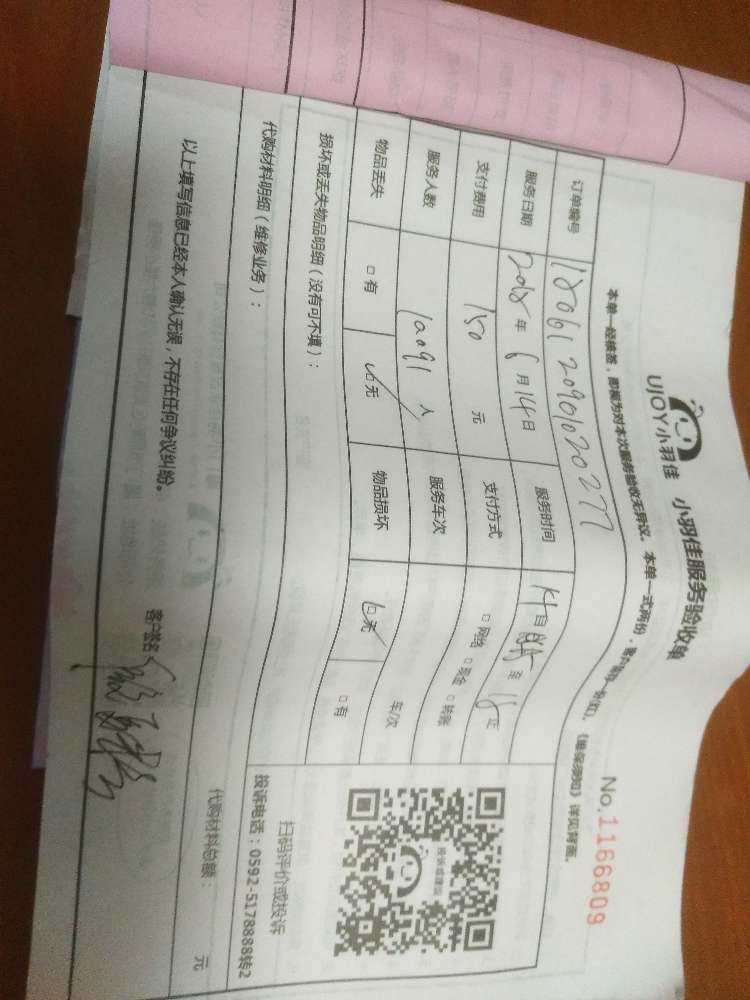 UJOY小羽佳 小羽佳服务验收单
No.1166809
本单一经横签，即视为对本次服务验收无异议。本单一式两份，《维保须知》详见背面。
订单编号 180612090102027
服务日期 2018年6月14日 服务时间 14日 至 18
支付费用 150 元 支付方式 □网络 □现金 □转账
服务人数 1a091 人 服务车次 车/次
物品丢失 □有 □无 物品损坏 □无 □有
损坏或丢失物品明细（没有可不填）：
投诉或建议
扫码评价或投诉
投诉电话：0592-5178888转2
代购材料明细（维修业务）：
代购材料总额： 元
以上填写信息已经本人确认无误，不存在任何争议纠纷。 客户签名